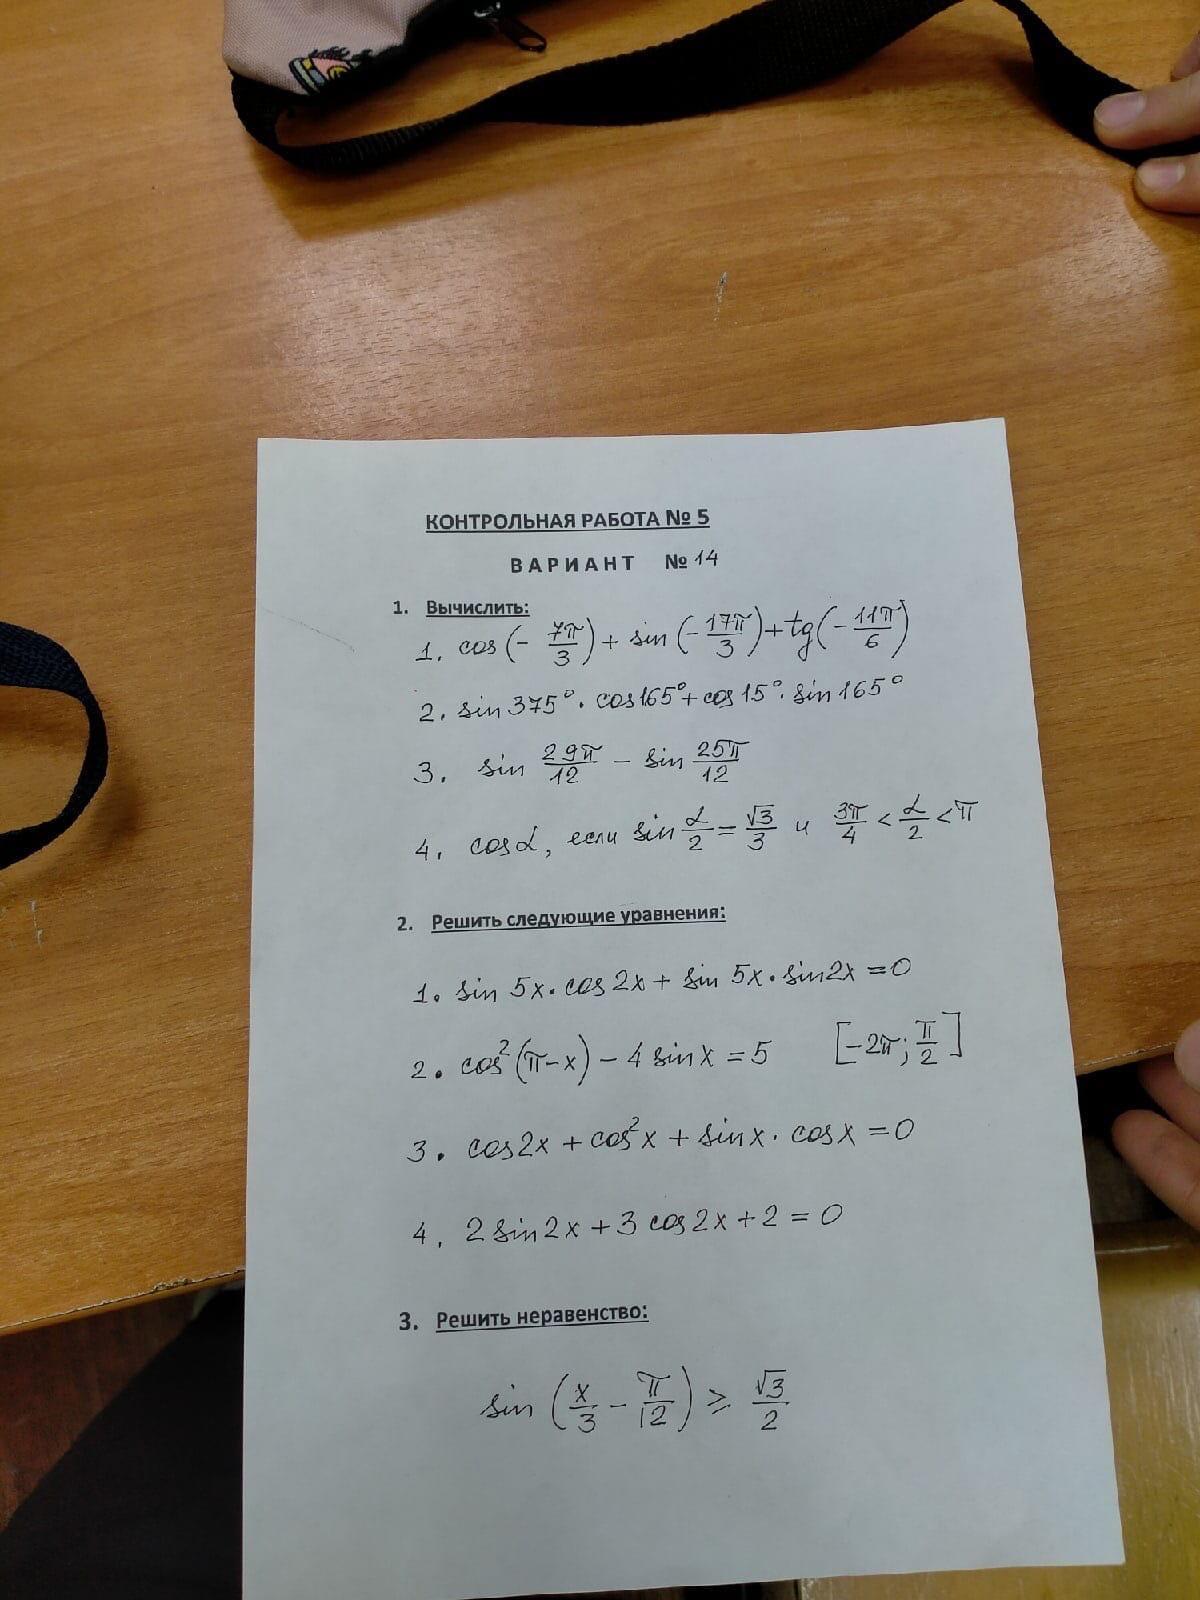 КОНТРОЛЬНАЯ РАБОТА № 5
ВАРИАНТ № 14
1. Вычислить:
1. cos(-7π/3) + sin(-17π/3) + tg(-11π/6)
2. sin 375° · cos 165° + cos 15° · sin 165°
3. sin 29π/12 - sin 25π/12
4. cos α, если sin α/2 = √3/3 и 3π/4 < α/2 < π
2. Решить следующие уравнения:
1. sin 5x · cos 2x + sin 5x · sin 2x = 0
2. cos²(π-x) - 4 sin x = 5 [-2π; π/2]
3. cos 2x + cos²x + sin x · cos x = 0
4. 2 sin 2x + 3 cos 2x + 2 = 0
3. Решить неравенство:
sin(x/3 - π/12) ≥ √3/2